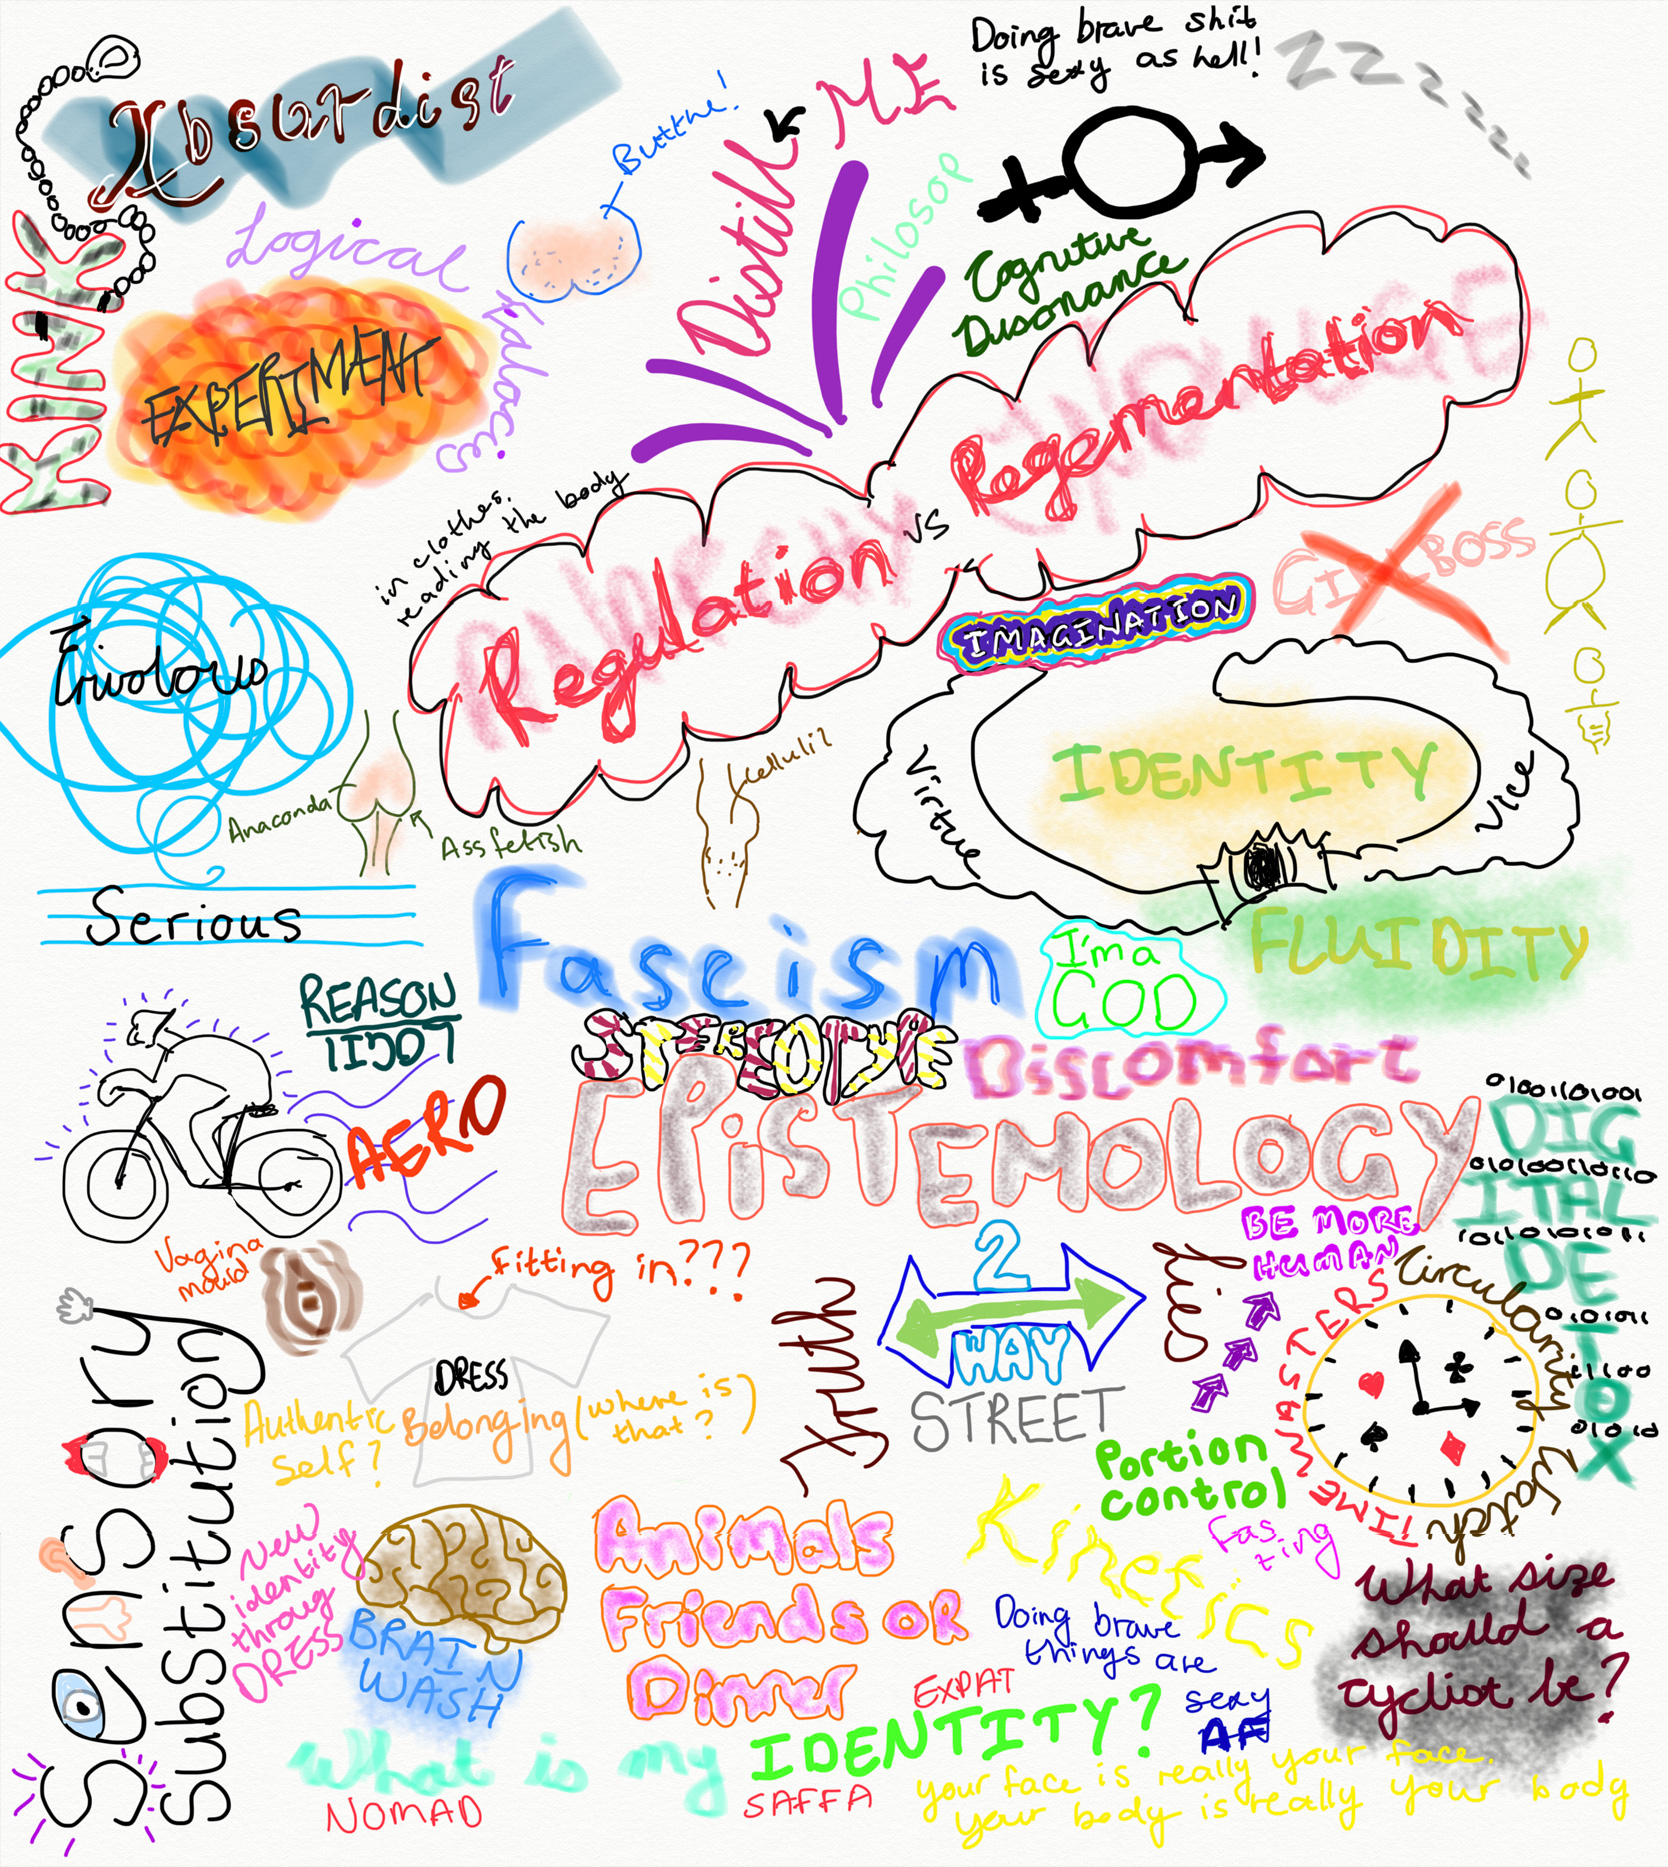 Doing brave shit
is sexy as hell!
ZZZZZZZ
Absurdist
ME
Distill
Philosop
KINK
Logical
Falacies
EXPERIMENT
Cognitive
Disonance
Regulation
vs
Regementation
in clothes,
reading the body
GIRLBOSS
IMAGINATION
Frivolous
Serious
IDENTITY
Virtue
Vice
FLUIDITY
Anaconda
Ass fetish
Fascism
I'm a
GOD
REASON
LOGIC
STEREOTYPE
Discomfort
AERO
EPiSTEMOLOGY
01001101001
DIG
ITAL
DE
T
O
X
BE MORE
HUMAN
Vagina
mould
Fitting in???
DRESS
Authentic
self?
Belonging (where is
that?)
Truth
2
WAY
STREET
Lies
Circularity
Watch
TIMEWASTERS
Portion
control
Fas
ting
Kinetics
Sensory
Substitution
New
identity
throug
DRESS
BRAIN
WASH
Animals
Friends OR
Dinner
Doing brave
things are
sexy
AF
What size
should a
cyclist be?
EXPAT
What is my IDENTITY?
NOMAD
SAFFA
your face is really your face.
your body is really your body